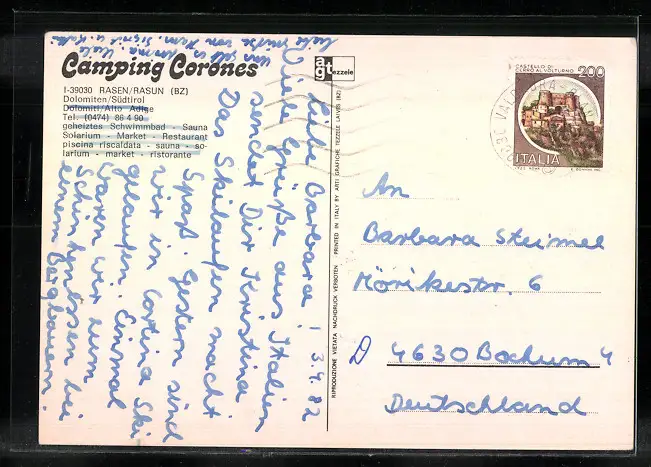 Camping Corones
I-39030 RASEN/RASUN (BZ)
Dolomiten/Südtirol
Dolomiti/Alto Adige
Tel. (0474) 86 4 90
geheiztes Schwimmbad - Sauna
Solarium - Market - Restaurant
piscina riscaldata - sauna - so-
larium - market - ristorante
agt tezzele
3.4.82
Liebe Barbara!
Viele Grüße aus Italien
sendet Dir Kristina
Das Skilaufen macht
Spaß. Gestern sind
wir in Cortina Ski
gelaufen. Einmal
waren wir zum
Schinkenessen bei
einem Bergbauern.
RIPRODUZIONE VIETATA NACHDRUCK VERBOTEN PRINTED IN ITALY BY ARTI GRAFICHE TEZZELE LAIVES (BZ)
CASTELLO DI
CERRO AL VOLTURNO
200
ITALIA
An
Barbara Steimel
Mörikestr. 6
D 4630 Bochum 4
Deutschland